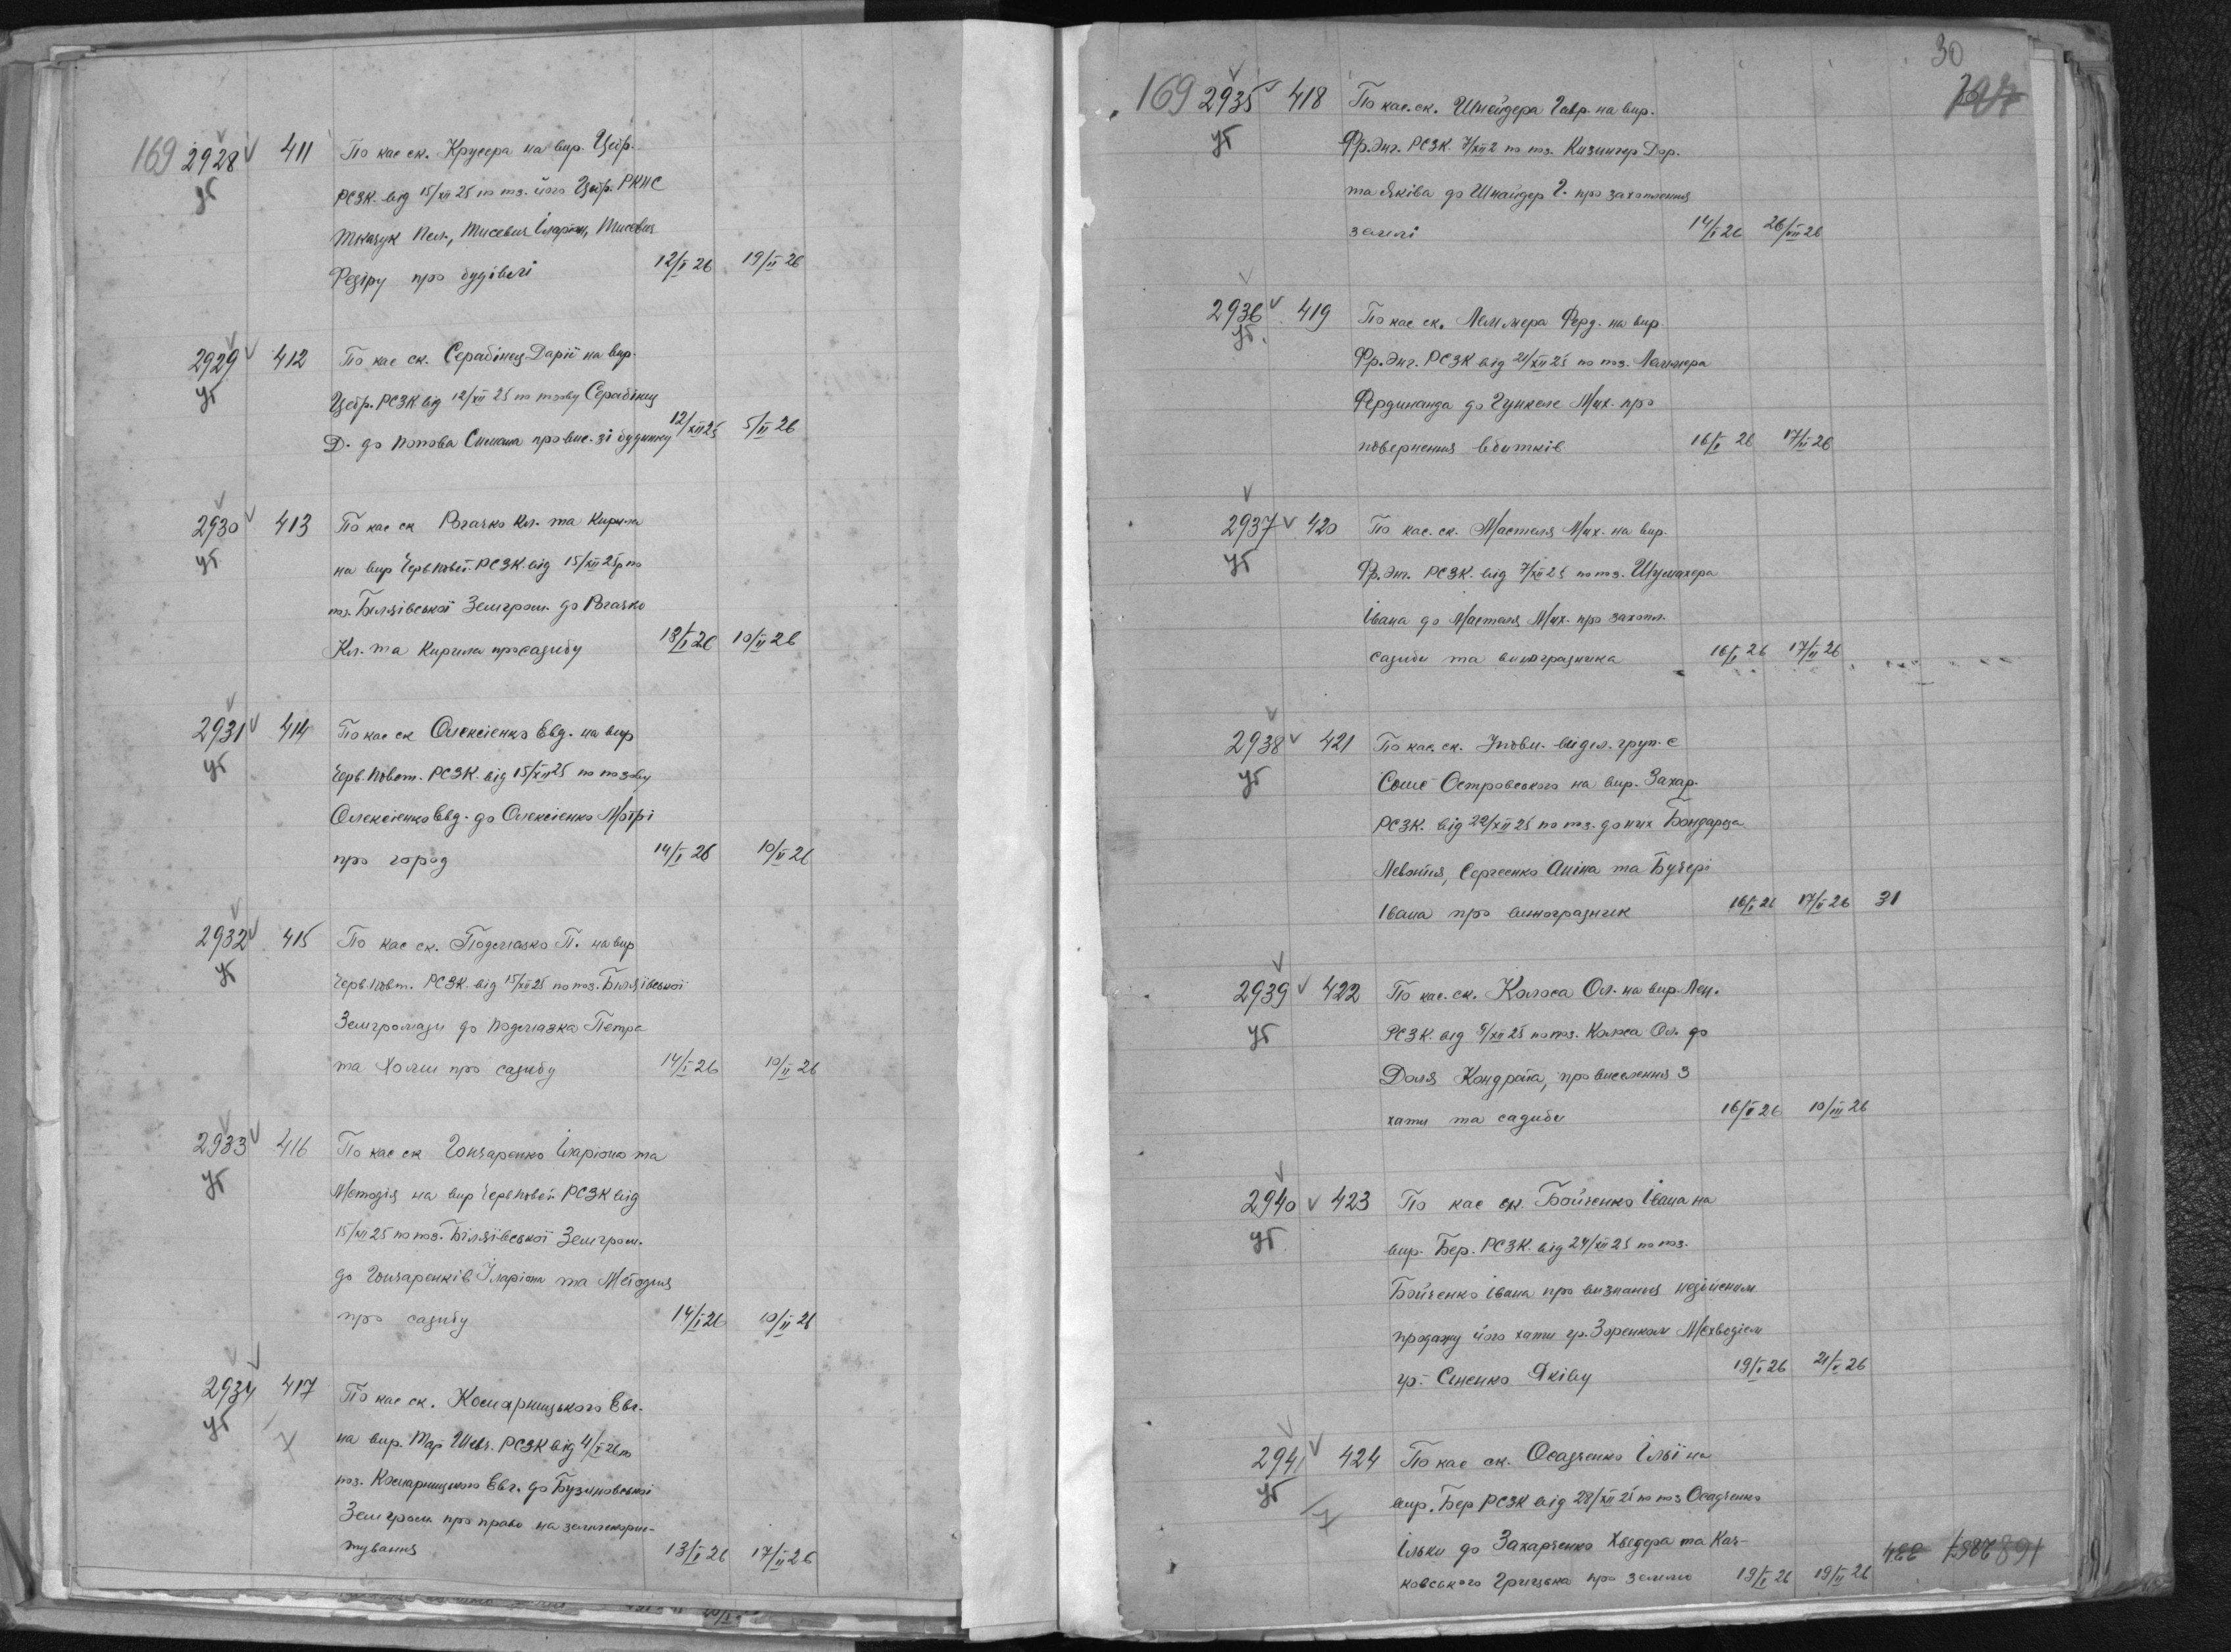 169 2928 411 По кас ск. Крусера на вир. Цебр.
уг РСЗК від 15/XII 25 по поз. його Цебр. РКНС
Ткачук Пел., Мисевич Іларіон, Мисевич
Федіру про будівлі 12/I 26 19/II 26
2929 412 По кас ск. Серабінец Дарії на вир.
уг Цебр. РСЗК від 12/XII 25 по позву Серабінец
Д. до Попова Симона про вис. зі будинку 12/XII 25 5/II 26
2930 413 По кас ск Рогачко Кл. та Кирила
уг на вир Черв.повст. РСЗК від 15/XII 25р по
поз. Біляївської Земгром. до Рогачко
Кл. та Кирила про садибу 13/I 26 10/II 26
2931 414 По кас ск Олексієнко Евд. на вир
уг Черв. Повст. РСЗК від 15/XII 25 по позву
Олексієнко Евд. до Олексієнко Мотрі
про город 14/I 26 10/II 26
2932 415 По кас ск. Подолазко П. на вир
уг Черв. Повст. РСЗК від 15/XII 25 по поз. Біляївської
Земгромади до Подолазка Петра
та Хоми про садибу 14/I 26 10/II 26
2933 416 По кас ск Гончаренко Іларіона та
уг Методія на вир Черв Повст. РСЗК від
15/XII 25 по поз. Біляївської Земгром.
до Гончаренків Іларіона та Методия
про садибу 14/I 26 10/II 26
2934 417 По кас ск. Комарницького Евг.
уг на вир. Тар Шевч. РСЗК від 4/I 26 по
поз. Комарницького Евг. до Бузиновської
Земгром. про право на землекорис-
тування 13/I 26 17/II 26
30
169 2935 418 По кас. ск. Шнейдера Гавр. на вир.
уг Фр. Энг. РСЗК. 7/XII 2 по поз. Кизингер Дор.
та Яківа до Шнайдер Г. про захоплення
землі 14/I 26 26/VII 26
2936 419 По кас ск. Леммера Ферд. на вир
уг. Фр. Энг. РСЗК від 21/XII 25 по поз. Леммера
Фердинанда до Гункеле Мих. про
повернення збитків 16/I 26 17/II 26
2937 420 По кас. ск. Масталя Мих. на вир.
уг Фр. Энг. РСЗК. від 7/XII 25 по поз. Шумахера
Івана до Масталя Мих. про захопл.
садиби та виноградника 16/I 26 17/II 26
2938 421 По кас. ск. Уповн. відел. груп. с
уг Соше-Островського на вир. Захар.
РСЗК. від 22/XII 25 по поз. до них Бондарца
Левонтія, Сергеенко Аніна та Бучері
Івана про виноградник 16/I 26 17/II 26 31
2939 422 По кас. ск. Колоса Ол. на вир. Лен.
уг РСЗК. від 5/XII 25 по поз. Колоса Ол. до
Доля Кондрата, про виселення з
хати та садиби 16/I 26 10/III 26
2940 423 По кас ск. Бойченко Івана на
уг вир. Бер. РСЗК від 24/XII 25 по поз.
Бойченко Івана про визнання недійсним
продажу його хати гр. Зоренком Мехводієм
гр. Сененко Яківу 19/I 26 21/V 26
2941 424 По кас ск. Осадченко Ільї на
уг вир. Бер РСЗК від 28/XII 25 по поз Осадченко
Ільки до Захарченко Хведера та Кач-
ковського Грицька про землю 19/I 26 19/II 26